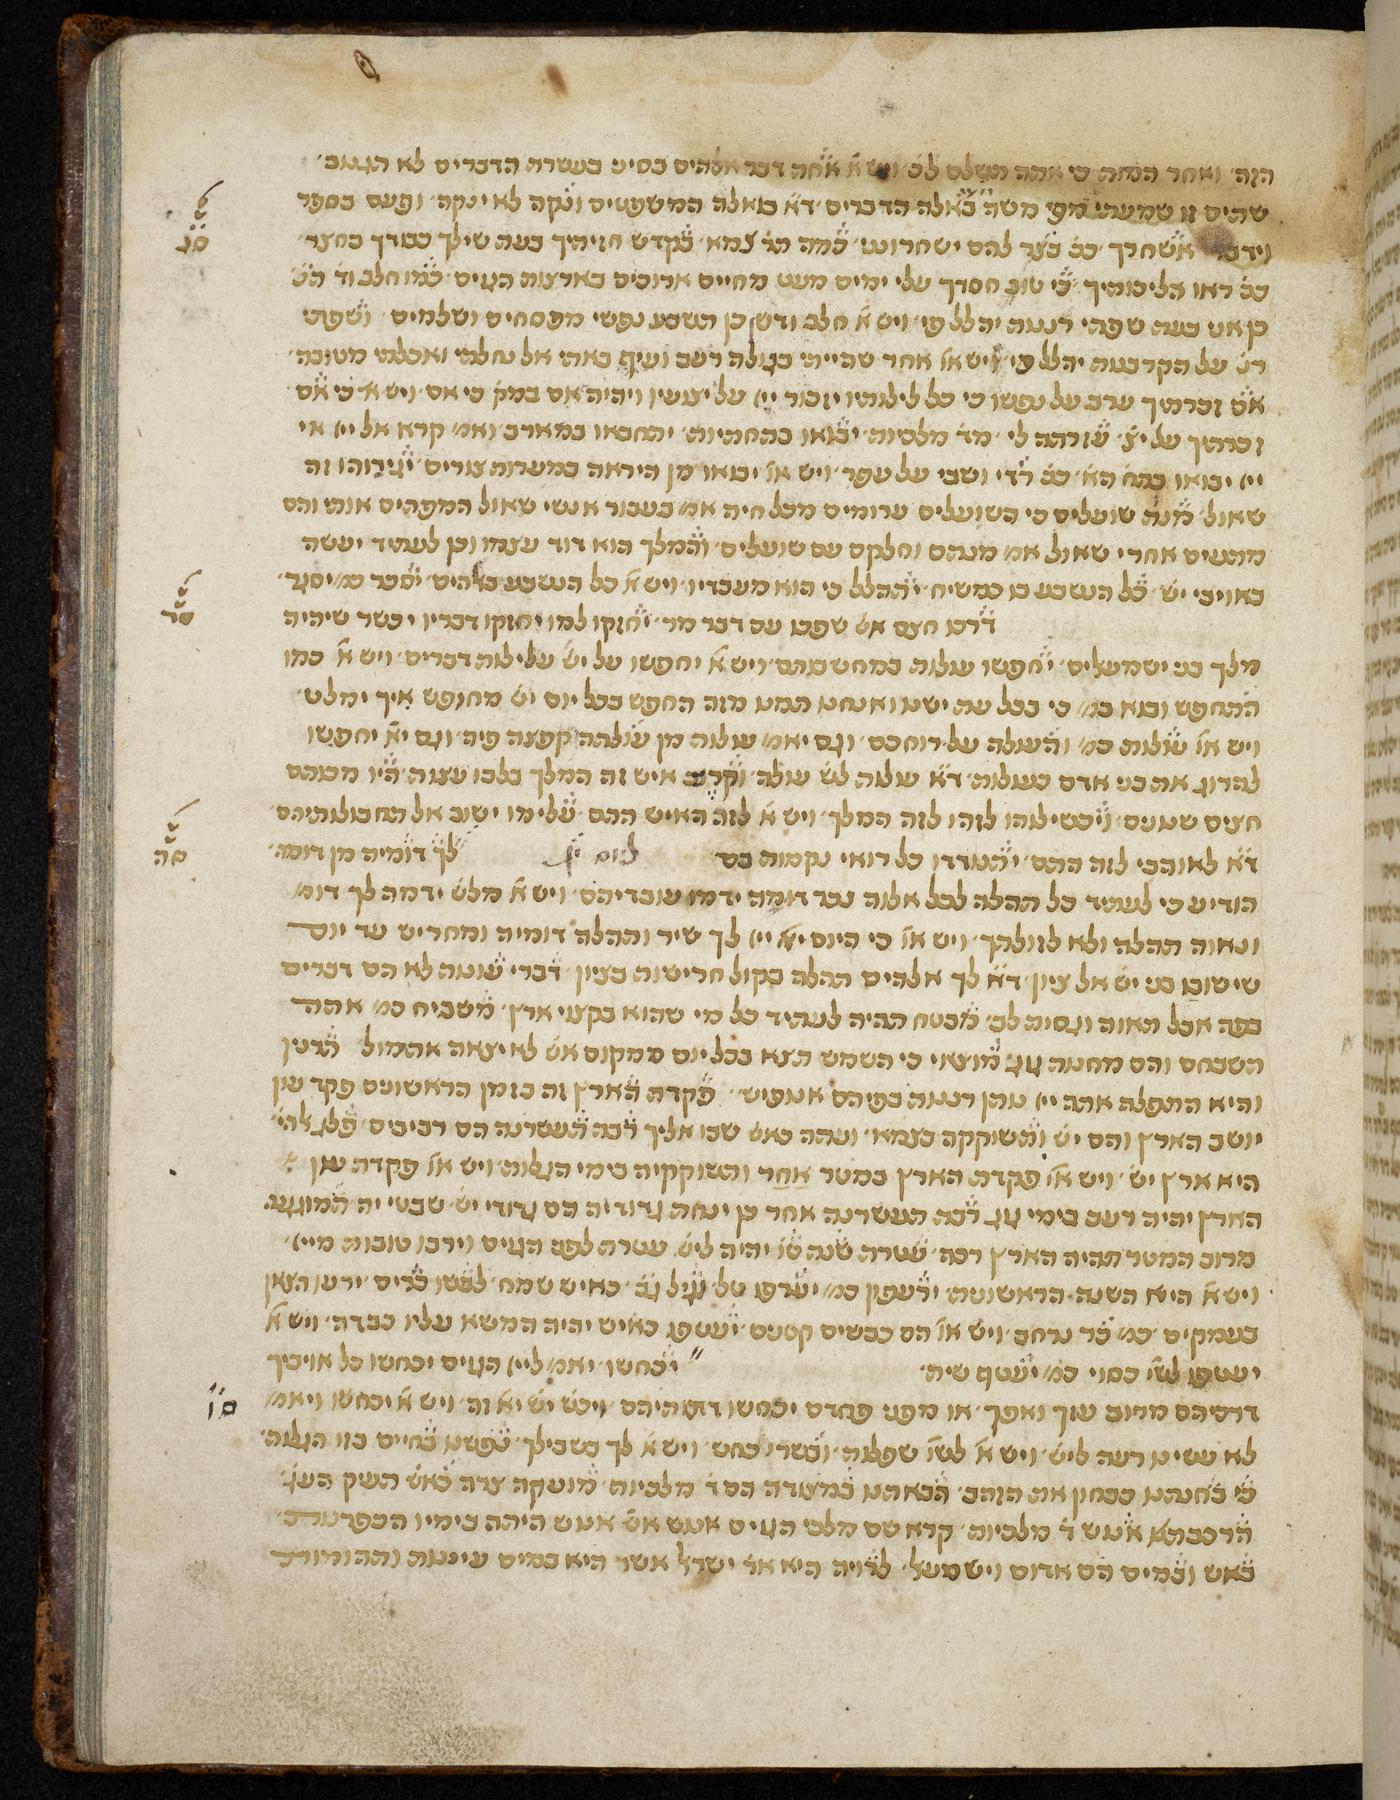 הזה ואחר המות כי אתה תשלם לכ׳ ויש א׳ אחת דבר אלהים בסיני בעשרת הדברים לא תגנוב
שתים זו שמעתי מפי משה באלה הדברים ד״א באלה המשפטים ונקה לא ינקה ופעם בספר
וידבר אשחרך כב׳ בצר להם ישחרונני כמה תר׳ צמא בקדש חזיתיך בעת שילך כבודך בחצר
כב׳ ראו הליכותיך כי טוב חסדך עלי ימים מעט מחיים ארוכים בארצות הגוים כמו חלב וד׳
כן אני בעת שפתי רננות יהלל פי ויש א׳ חלב ודשן כן תשבע נפשי מפסחים ושלמים ושפתי
רנ׳ על הקרבנות יהלל פי ויש או׳ אחר שהייתי בגולה רעב ועיף באתי אל נחלתי ואכלתי מטובה
אם זכרתיך ערב על נפשו כי כל לילותיו יזכור ייי על יצועיו ויהיה אם במק׳ כי אם ויש א׳ כי אם
זכרתיך על יצ׳ עזרתה לי מד׳ מלכיות יבואו בתחתיות יתחבאו במארב ואמ׳ קרא אל ייי אי
ייי יבואו בתח׳ הא׳ כב׳ רדי ושבי על עפר ויש או׳ יבואו מן היראה במערות צורים יגירוהו זה
שאול מנת שועלים כי השועלים ערומים מכל חיה אמ׳ בעבור אנשי שאול המפתים אותו והם
מוטים אחרי שאול אמ׳ מנתם וחלקם עם שועלים והמלך הוא דוד עצמו וכן לעתיד יעשה
באויבי יש׳ כל הנשבע בו במשיח יתהלל כי הוא מעבדיו ויש א׳ כל הנשבע באלהים יסכר כמ׳ יסגר
דרכו חצם אש׳ שפכו עם דבר מר יחזקו למו יחזקו דבריו יכשר שיהיה
מלך בני ישמעאלים יחפשו עולות במחשבותם ויש א׳ יחפשו על יש׳ עלילות דברים ויש א׳ כמו
התחפש ובוא כמ׳ כי בכל עת ישנו ואנחנו תמנו מזה החפש בכל יום יש׳ מחופש איך ימלט
ויש או׳ עולות כמ׳ והעולה על רוחכם וגם יאמ׳ עולות מן עולתה קפצה פיה וגם יא׳ יחפשו
להרוג את בני אדם בעולות ד״א עולות לש׳ עולה וקרב איש זה המלך בלבו עצות היו מכותם
חצים שנונים ויכשילוהו לזהו לזה המלך ויש א׳ לזה האיש התם עלימו ישוב אל תחבולותיהם
ד״א לאוהבי לזה התם יתנודדו כל רואי נקמות בם ליום י׳ לך דומיה מן דומה
הודיע כי לעתיד כל תהלה לכל אלוה נכר דומה ידמו עובדיהם ויש א׳ מלש׳ ידמה לך דומ׳
ונאוה תהלה ולא לזולתך ויש או׳ כי היום יא׳ ייי לך שיר ותהלה דומיה ומחריש עד יום
שישובו בני יש׳ אל ציון ד״א לך אלהים תהלה בקול חרישות בציון דברי עונות לא הם דברים
בפה אבל תאוה וגסות לב מבטח תהיה לעתיד כל מי שהוא בקצוי ארץ משביח כמ׳ אתה
תשבחם והם מחנות גוג מוצאי כי השמש תצא בכל יום ממקום אש׳ לא יצאה אתמול תרנין
והיא התפלה אתה ייי נותן רננות בפיהם אנפיש פקדת הארץ זה בזמן הראשונים פקד עון
יושב הארץ והם יש׳ ותשוקקה בצמא ועתה כאש׳ שבו אליך רבה תעשרנה הם רביבים פלג אלהי׳
היא ארץ יש׳ ויש או׳ פקדת הארץ במטר אחר ותשוקקיה בימי הגלות ויש או׳ פקדת עון
הארץ יהיה רעב בימי גוג רבה תעשרנה אחר כן ינחת גדודיה הם גדודי יש׳ שבטי יה תמוגגנ׳
מרוב המטר תהיה הארץ רכה עטרת שנת טו׳ יהיה ליש׳ עטרה לפני הגוים וירבו טובות מייי
ויש א׳ היא השנה הראשונית ירעפון כמ׳ יערפו טל וגיל גב׳ כאיש שמח לבשו כרים ירעו הצאן
בעמקים כמ׳ כר נרחב ויש או׳ הם כבשים קטנים יעטפו כאיש יהיה המשא עליו כבדה ויש א׳
יעטפו לש׳ כסוי כמ׳ יעטף שית יכחשו יאמ׳ לייי הגוים יכחשו כל אויביך
דרכיהם מרוב עוזך ואפך או מפני פחדם יכחשו דתותיהם ויכש׳ יש׳ יא׳ זה ויש א׳ יכחשו ויאמ׳
לא עשינו רעה ליש׳ ויש א׳ לש׳ שפלות ובשרו כחש ויש א׳ לך בשבילך נפשנו בחיים בזו הגלות
כי בחנתנו כבחון את הזהב הבאתנו במצודה הם ד׳ מלכיות מועקה צרה כאש׳ השק העג׳
הרכבת אנוש ד׳ מלכיות קרא שם מלכי הגוים אנוש אש׳ אנוש היתה בימיו הכפרנות
באש ובמים הם אדום וישמעאל לרויה היא אר׳ ישראל אשר היא במים עינות ותהומות
סג
סד
סה
סו